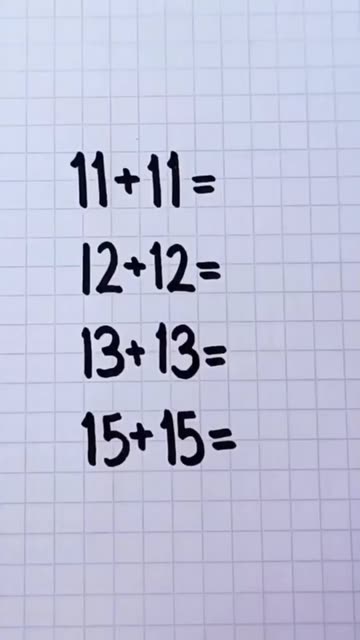 11+11=
12+12=
13+13=
15+15=